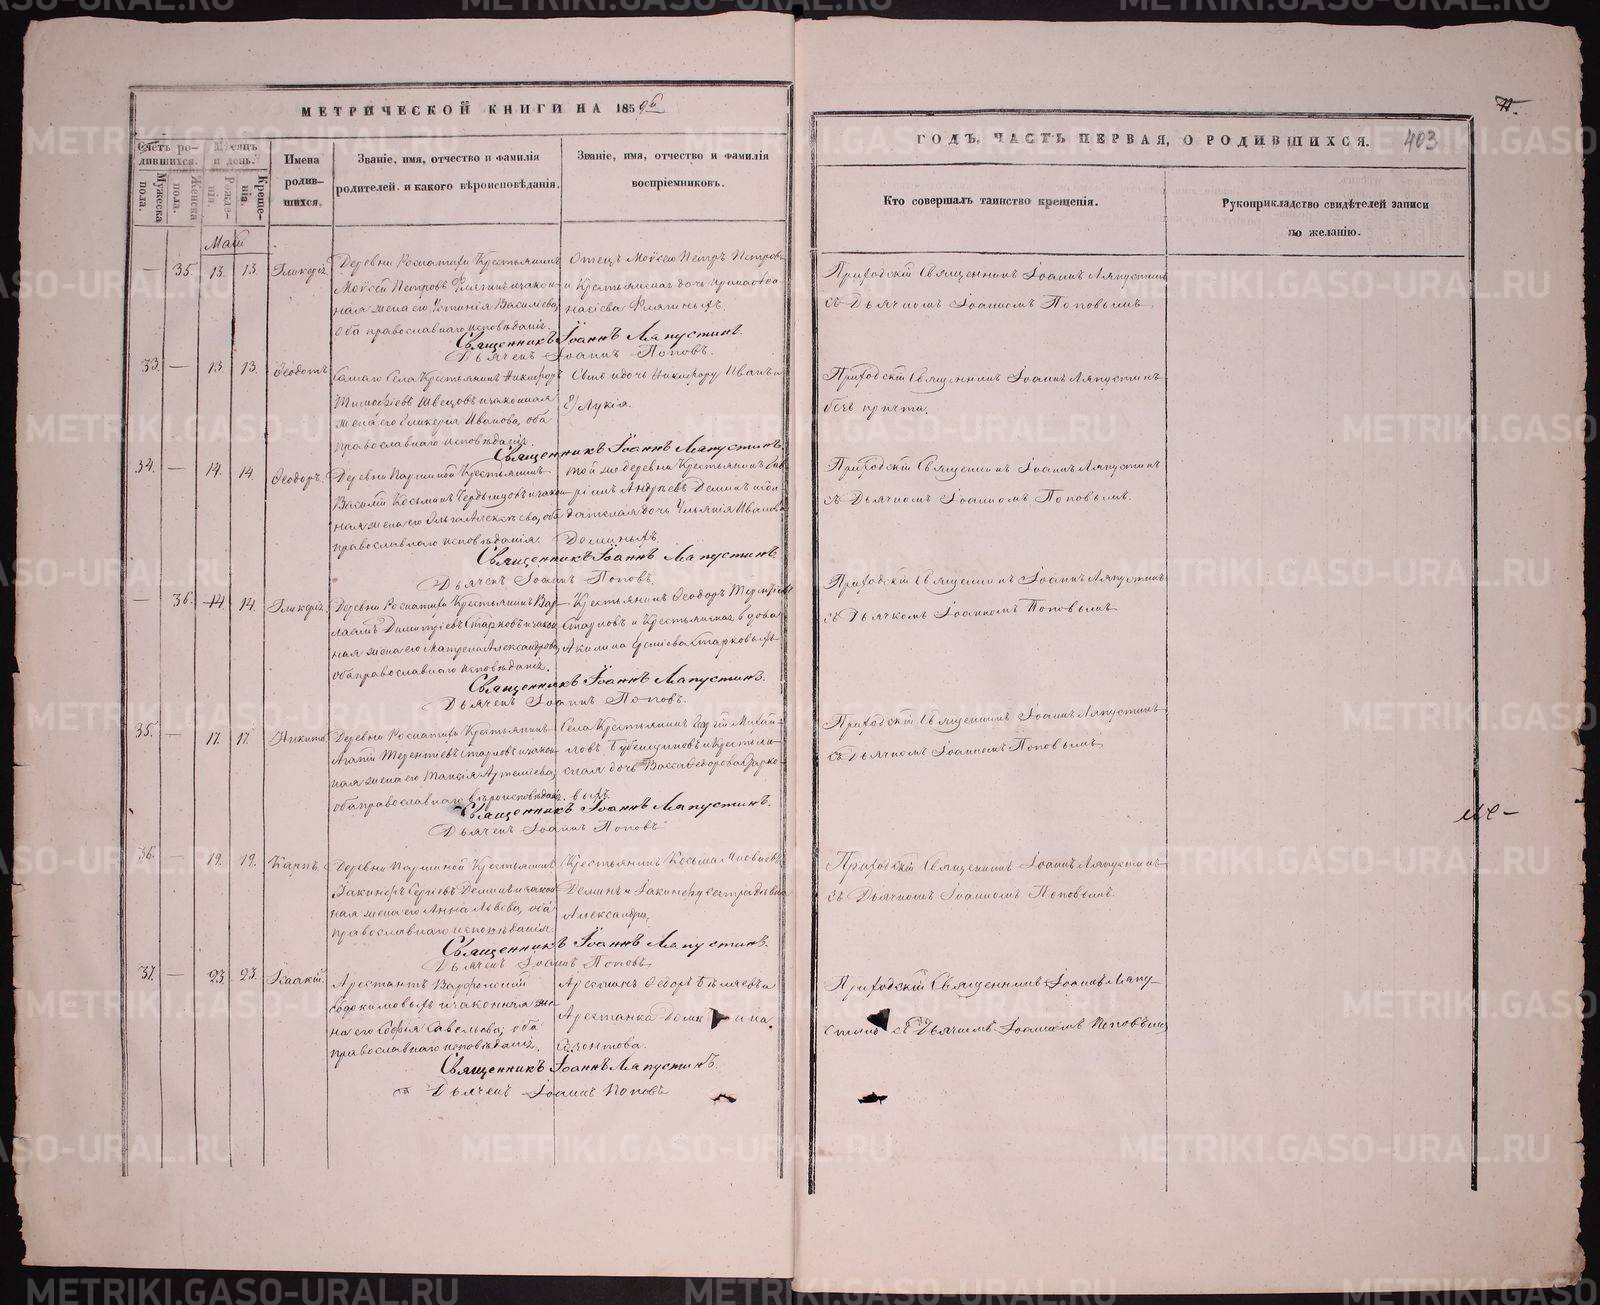 МЕТРИЧЕСКОЙ КНИГИ НА 1859й
Счетъ родившихся.
Мужеска пола.
Женска пола.
Мѣсяцъ и день.
Рожденія.
Крещенія.
Имена родившихся.
Званіе, имя, отчество и фамилія родителей, и какого вѣроисповѣданія.
Званіе, имя, отчество и фамилія воспріемниковъ.
ГОДЪ, ЧАСТЬ ПЕРВАЯ, О РОДИВШИХСЯ.
403
Кто совершалъ таинство крещенія.
Рукоприкладство свидѣтелей записи по желанію.
Маій
— 35. 13. 13. Гликерія
Деревни Крестьянинъ
Моисей Петровъ и закон-
ная жена его Василіева,
оба православнаго исповѣданія.
Отецъ Моисею Петръ Петровъ
и Крестьянская дочь
Приходскій Священникъ Іоаннъ Ляпустинъ
съ Дьячкомъ Іоанномъ Поповымъ.
Священникъ Іоаннъ Ляпустинъ.
Дьячекъ Іоаннъ Поповъ.
33. — 13. 13. Ѳеодотъ
Самаго Села Крестьянинъ Никифоръ
Швецовъ и законная
жена его Гликерія Иванова, оба
православнаго исповѣданія.
Сынъ и дочь Никифору Иванъ и
Лукія.
Приходскій Священникъ Іоаннъ Ляпустинъ
безъ причта.
Священникъ Іоаннъ Ляпустинъ.
34. — 14. 14. Ѳеодоръ.
Деревни Паршиной Крестьянинъ
Василій Козьминъ и закон-
ная жена его Ольга Алексѣева, оба
православнаго исповѣданія.
Той же деревни Крестьянинъ
Андреевъ Деминъ и
дочь Иванова
Деминыхъ.
Приходскій Священникъ Іоаннъ Ляпустинъ
съ Дьячкомъ Іоанномъ Поповымъ.
Священникъ Іоаннъ Ляпустинъ.
Дьячекъ Іоаннъ Поповъ.
— 36. 14. 14. Гликерія
Деревни Крестьянинъ Вар-
лаамъ Димитріевъ Старковъ и закон-
ная жена его Матрена Александрова,
оба православнаго исповѣданія.
Крестьянинъ Ѳеодоръ
Старковъ и Крестьянская вдова
Акилина Старковыхъ
Приходскій Священникъ Іоаннъ Ляпустинъ
съ Дьячкомъ Іоанномъ Поповымъ
Священникъ Іоаннъ Ляпустинъ.
Дьячекъ Іоаннъ Поповъ.
35. — 17. 17. Никита
Деревни Крестьянинъ
Агапій Терентіевъ Старковъ и закон-
ная жена его Таисія Артеміева,
оба православнаго вѣроисповѣданія.
Села Крестьянинъ Михай-
ловъ и Крестьян-
ская дочь Васса Ѳедорова Старко-
выхъ.
Приходскій Священникъ Іоаннъ Ляпустинъ
съ Дьячкомъ Іоанномъ Поповымъ
Священникъ Іоаннъ Ляпустинъ.
Дьячекъ Іоаннъ Поповъ
36. — 19. 19. Карпъ.
Деревни Паршиной Крестьянинъ
Іакинфъ Сергіевъ Деминъ и закон-
ная жена его Анна Львова, оба
православнаго исповѣданія.
Крестьянинъ Козьма
Деминъ и Іакинфу сестра дѣвица
Александра.
Приходскій Священникъ Іоаннъ Ляпустинъ
съ Дьячкомъ Іоанномъ Поповымъ.
Священникъ Іоаннъ Ляпустинъ.
Дьячекъ Іоаннъ Поповъ
37. — 23. 23. Исаакій.
Арестантъ Варфоломій
Евдокимовъ и законная же-
на его Софія Савельева, оба
православнаго исповѣданія.
Арестантъ Ѳедоръ Бѣляевъ и
Арестанка
Приходскій Священникъ Іоаннъ Ляпу-
стинъ съ Дьячкомъ Іоанномъ Поповымъ
Священникъ Іоаннъ Ляпустинъ.
Дьячекъ Іоаннъ Поповъ
METRIKI.GASO-URAL.RU